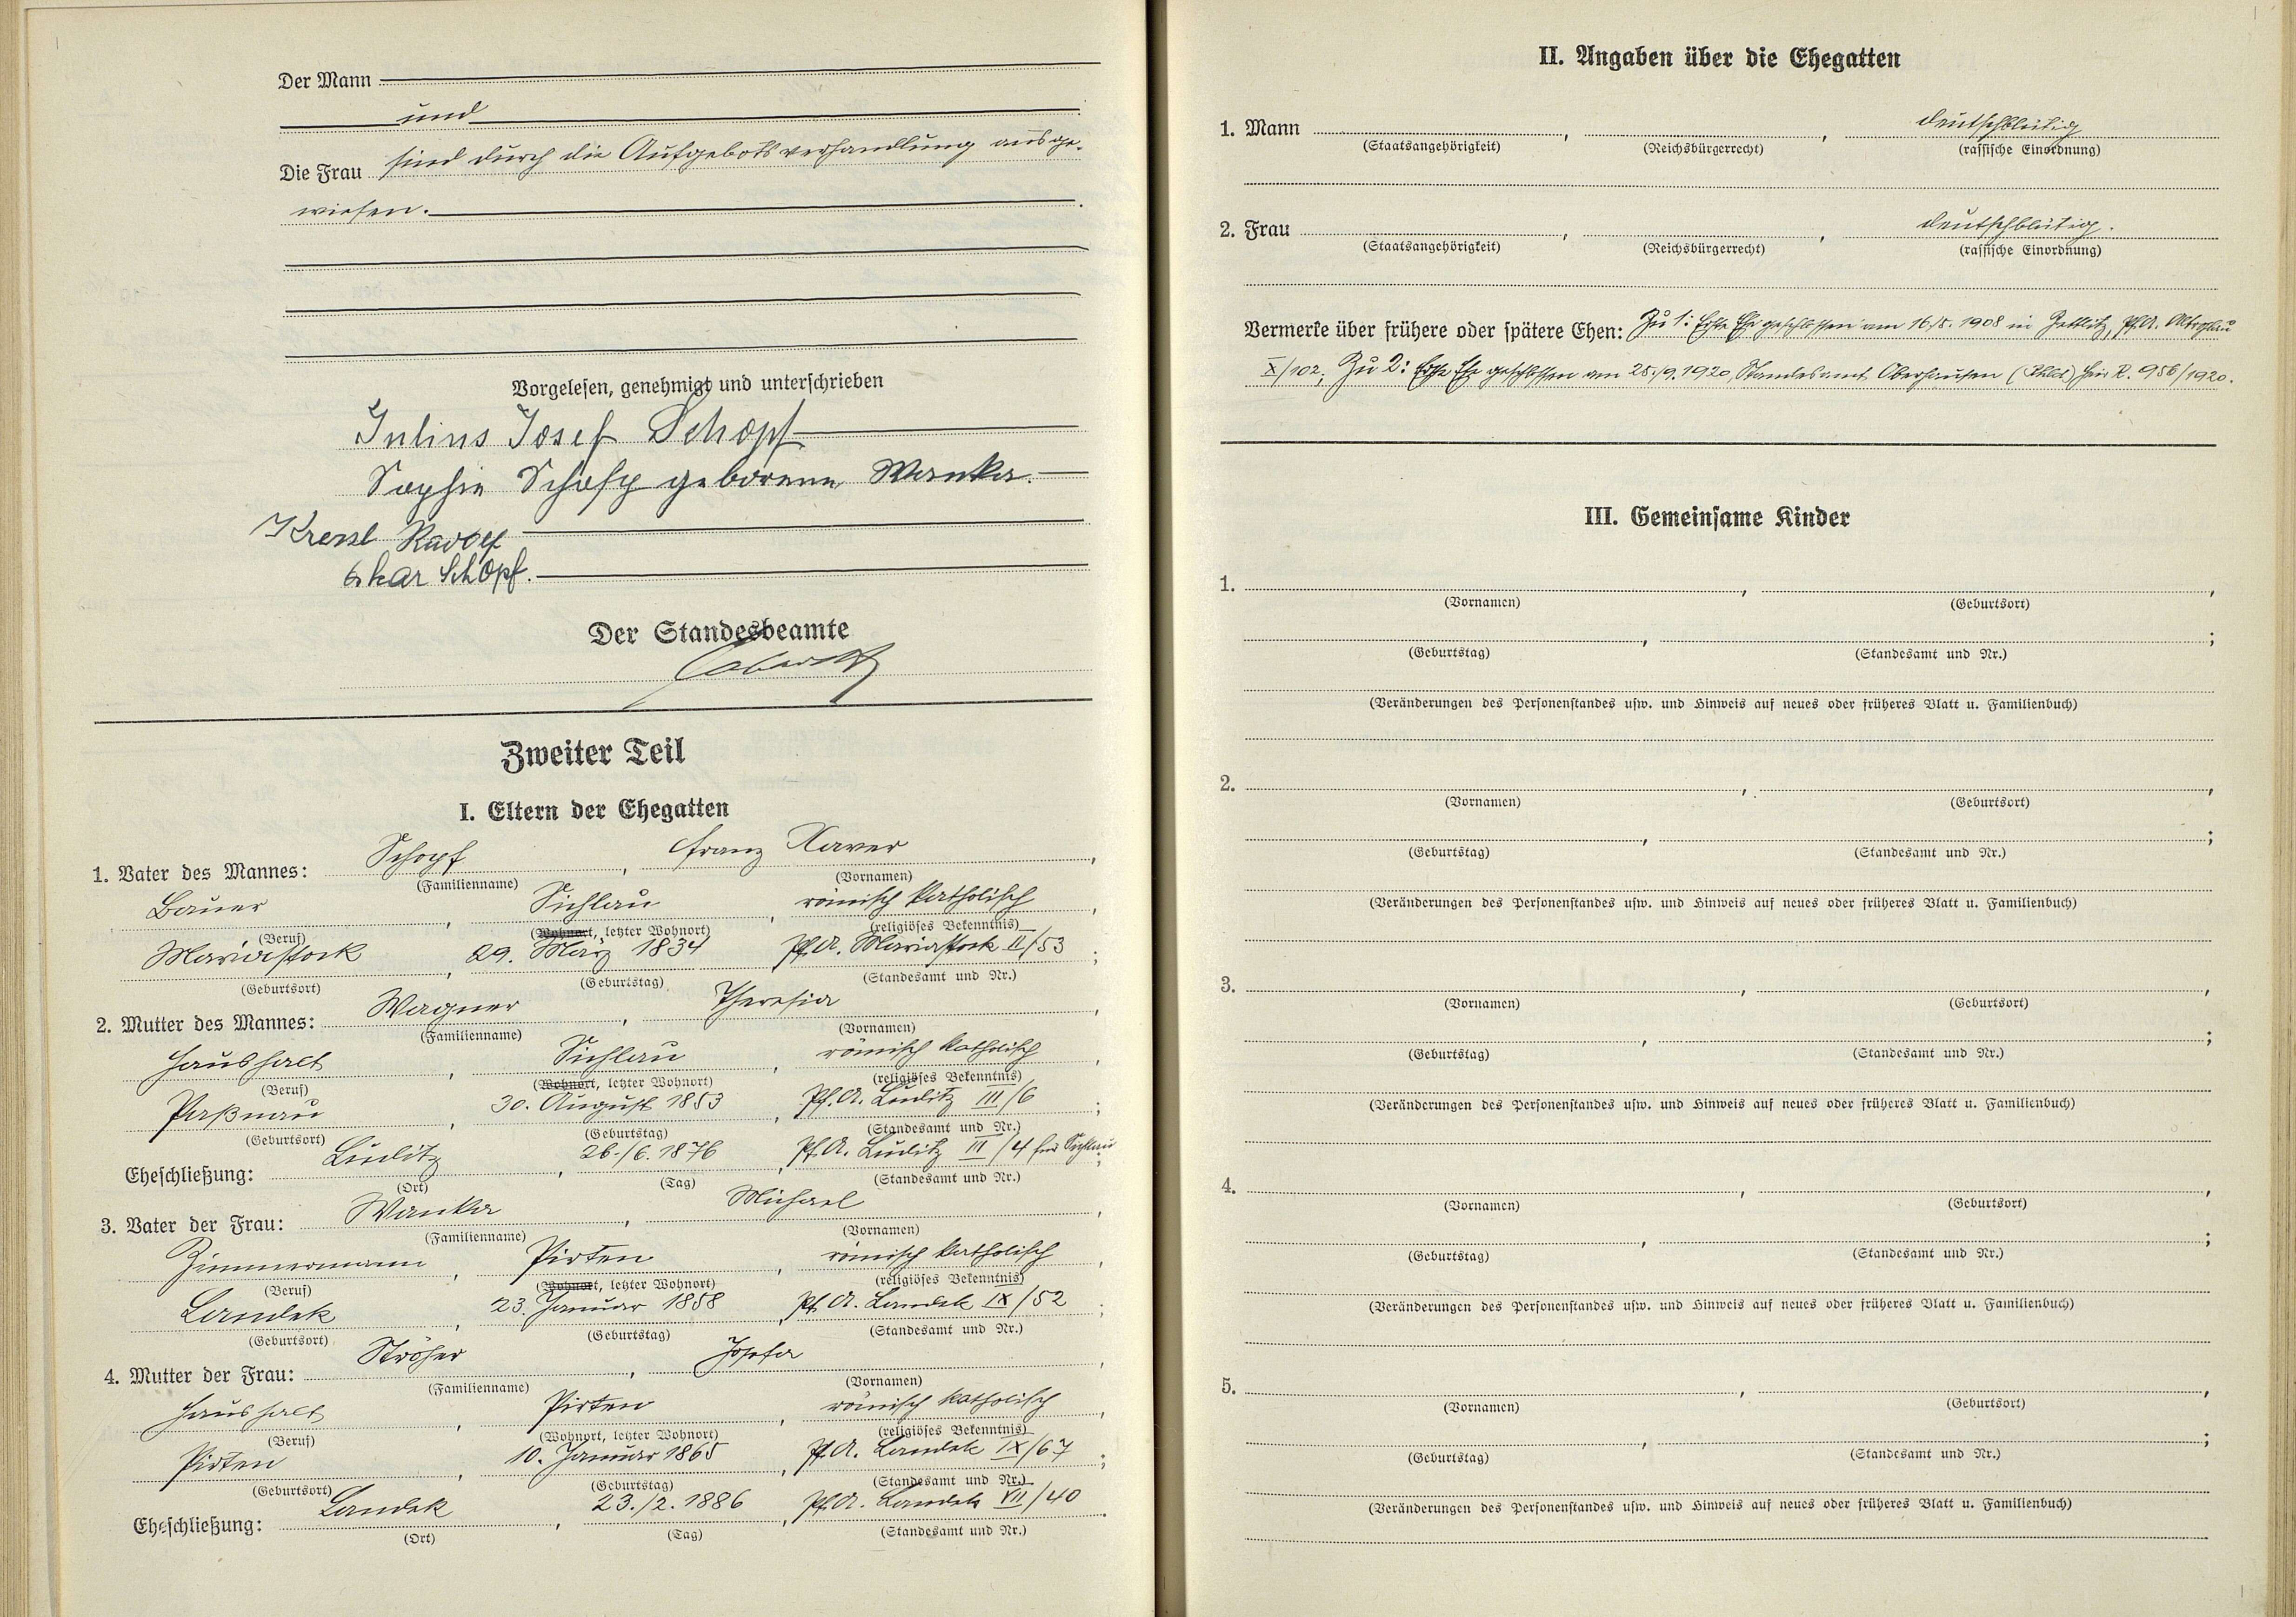 Der Mann
und
Die Frau sind durch die Aufgebotsverhandlung ausge-
wiesen.
Vorgelesen, genehmigt und unterschrieben
Julius Josef Schopf
Sophie Schopf geborene Wanka.
Krensl Rudolf
Oskar Schopf.
Der Standesbeamte
Zweiter Teil
I. Eltern der Ehegatten
1. Vater des Mannes: Schopf, Franz Xaver,
(Familienname) (Vornamen)
Bauer, Sichlau, römisch katholisch,
(Beruf) (Wohnort, letzter Wohnort) (religiöses Bekenntnis)
Mariastock, 29. März 1834 Pf.A. Mariastock II/53;
(Geburtsort) (Geburtstag) (Standesamt und Nr.)
2. Mutter des Mannes: Wagner, Theresia,
(Familienname) (Vornamen)
Haushalt, Sichlau, römisch katholisch,
(Beruf) (Wohnort, letzter Wohnort) (religiöses Bekenntnis)
Paßnau, 30. August 1853, Pf.A. Luditz III/6;
(Geburtsort) (Geburtstag) (Standesamt und Nr.)
Eheschließung: Luditz, 26./6. 1876, Pf.A. Luditz III/4 für Sichlau;
(Ort) (Tag) (Standesamt und Nr.)
3. Vater der Frau: Wanka, Michael,
(Familienname) (Vornamen)
Zimmermann, Pirten, römisch katholisch,
(Beruf) (Wohnort, letzter Wohnort) (religiöses Bekenntnis)
Landek, 23. Januar 1858, Pf.A. Landek IX/52;
(Geburtsort) (Geburtstag) (Standesamt und Nr.)
4. Mutter der Frau: Ströher, Josefa,
(Familienname) (Vornamen)
Haushalt, Pirten, römisch katholisch,
(Beruf) (Wohnort, letzter Wohnort) (religiöses Bekenntnis)
Pirten, 10. Januar 1865, Pf.A. Landek IX/67;
(Geburtsort) (Geburtstag) (Standesamt und Nr.)
Eheschließung: Landek, 23./2. 1886, Pf.A. Landek VII/40.
(Ort) (Tag) (Standesamt und Nr.)
II. Angaben über die Ehegatten
1. Mann , , deutschblütig
(Staatsangehörigkeit) (Reichsbürgerrecht) (rassische Einordnung)
2. Frau , , deutschblütig.
(Staatsangehörigkeit) (Reichsbürgerrecht) (rassische Einordnung)
Vermerke über frühere oder spätere Ehen: Zu 1: Erste Ehe geschlossen am 16./5. 1908 in Zettlitz, Pf.A. Altrohlau
X/102; Zu 2: Erste Ehe geschlossen am 25./9. 1920, Standesamt Oberhausen (Rhld) Hei R. 956/1920.
III. Gemeinsame Kinder
1. , ,
(Vornamen) (Geburtsort)
, ;
(Geburtstag) (Standesamt und Nr.)
(Veränderungen des Personenstandes usw. und Hinweis auf neues oder früheres Blatt u. Familienbuch)
2. , ,
(Vornamen) (Geburtsort)
, ;
(Geburtstag) (Standesamt und Nr.)
(Veränderungen des Personenstandes usw. und Hinweis auf neues oder früheres Blatt u. Familienbuch)
3. , ,
(Vornamen) (Geburtsort)
, ;
(Geburtstag) (Standesamt und Nr.)
(Veränderungen des Personenstandes usw. und Hinweis auf neues oder früheres Blatt u. Familienbuch)
4. , ,
(Vornamen) (Geburtsort)
, ;
(Geburtstag) (Standesamt und Nr.)
(Veränderungen des Personenstandes usw. und Hinweis auf neues oder früheres Blatt u. Familienbuch)
5. , ,
(Vornamen) (Geburtsort)
, ;
(Geburtstag) (Standesamt und Nr.)
(Veränderungen des Personenstandes usw. und Hinweis auf neues oder früheres Blatt u. Familienbuch)